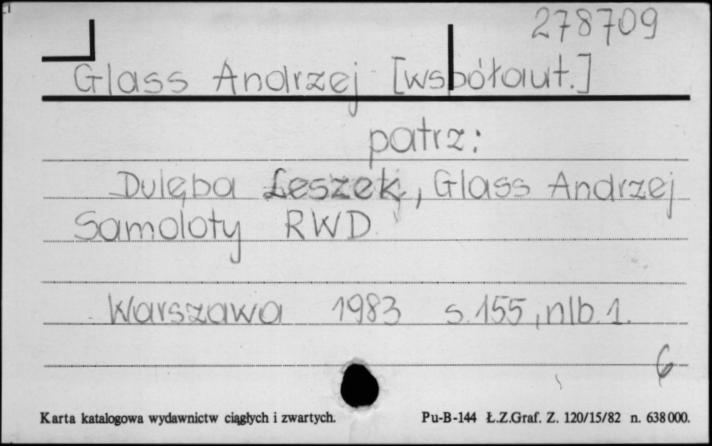 278709
Glass Andrzej [współaut.]
patrz:
Dulęba Leszek, Glass Andrzej
Samoloty RWD
Warszawa 1983 s. 155, nlb. 1.
6
Karta katalogowa wydawnictw ciągłych i zwartych. Pu-B-144 Ł.Z.Graf. Z. 120/15/82 n. 638000.